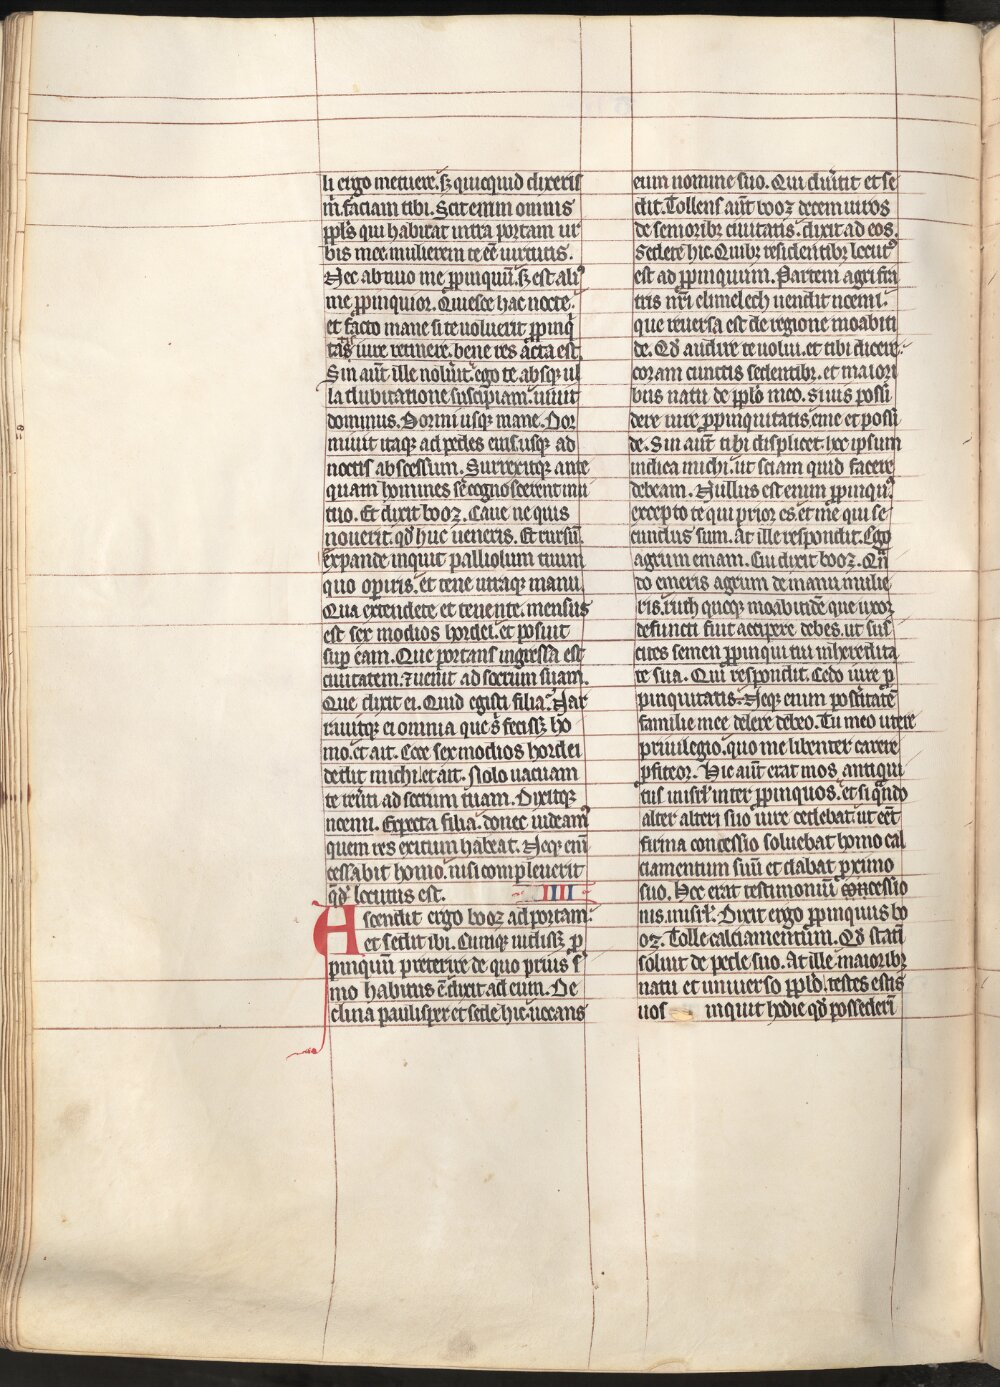 li ergo metuere. sꝫ quicquid dixeris
m̄. faciam tibi. Scit enim omnis
ppl̄s qui habitat intra portam ur
bis mee. mulierem te eē uirtutis.
Nec abnuo me ꝓpinquū. sꝫ est aliꝰ
me ꝓpinquior. Quiesce hac nocte.
et facto mane si te uoluerit ꝓpinq̇
tatis iure retinere. bene res acta est.
Sin aūt ille noluīt. ego te absqꝫ ul
la dubitatione suscipiam. uiuit
dominus. Dormi usqꝫ mane. Dor
miuit itaqꝫ ad pedes eius. usqꝫ ad
noctis abscessum. Surrexitqꝫ ante
quam homines se cognoscerent mu
tuo. Et dixit booz. Caue ne quis
nouerit. qd̄ huc ueneris. Et rursū.
expande inquit palliolum tuum
quo operiris. et tene utraqꝫ manu.
Qua extendete. et tenente. mensus
est sex modios hordei. et posuit
suꝑ eam. Que portans ingressa est
ciuitatem. ⁊ uenit ad socrum suam.
Que dixit ei. Quid egisti filia. Nar
rauitqꝫ ei omnia que s̄ fecissꝫ ho
mo. et ait. Ecce sex modios hordei
dedit michi. et ait. Nolo uacuam
te reuīti ad socrum tuam. Dixitqꝫ
noemi. Expecta filia. donec uideamꝰ
quem res exitum habeat. Neqꝫ enī
cessabit homo. nisi compleuerit
qd̄ locutus est. IIII
Ascendit ergo booz ad portam.
et sedit ibi. Cumqꝫ uidissꝫ ꝓ
pinquū preterire de quo prius ẜ
mo habitus ē. dixit ad eum. De
clina paulisper et sede hic. uocans
eum nomine suo. Qui diuīt̄it et se
dit. Tollens aūt booz decem uiros
de seniorib ciuitatis. dixit ad eos.
Sedete hic. Quibꝫ residentibꝫ locutꝰ
est ad ꝓpinquum. Partem agri fra
tris nr̄i elimelech uendit noemi.
que reuersa est de regione moabiti
de. Qd̄ audire te uolui. et tibi dicere
coram cunctis sedentibꝫ. et maiori
bus natu de ppl̄o meo. Si uis possi
dere iure propinquitatis. eme et possi
de. Sin aūt tibi displicet. hoc ipsum
indica michi. ut sciam quid facere
debeam. Nullus est enim ꝓpinquꝰ.
excepto te qui prior es. et me qui se
cundus sum. At ille respondit. Ego
agrum emam. Cui dixit booz. Qn̄
do emeris agrum de manu mulie
ris. ruth quoqꝫ moabitidē que uxor
defuncti fuit accipere debes. ut sus
cites semen ꝓpinqui tui in heredita
te sua. Qui respondit. Cedo iure ꝓ
pinquitatis. Neqꝫ enim posteritatē
familie mee delere debeo. Tu meo utere
priuilegio. quo me libenter carere
ꝓfiteor. Hic aūt erat mos antiqui
tus in isrl̄ inter ꝓpinquos. et si qn̄do
alter alteri suo iure cedebat. ut eēt
firma concessio soluebat homo cal
ciamentum suū et dabat proximo
suo. Hec erat testimoniū concessio
nis in isrl̄. Dixit ergo ꝓpinquus bo
oz. Tolle calciamentum. Qd̄ statī
soluit de pede suo. At ille maioribꝫ
natu et uniuerso ppl̄o. testes estis
uos inquit hodie qd̄ possederī